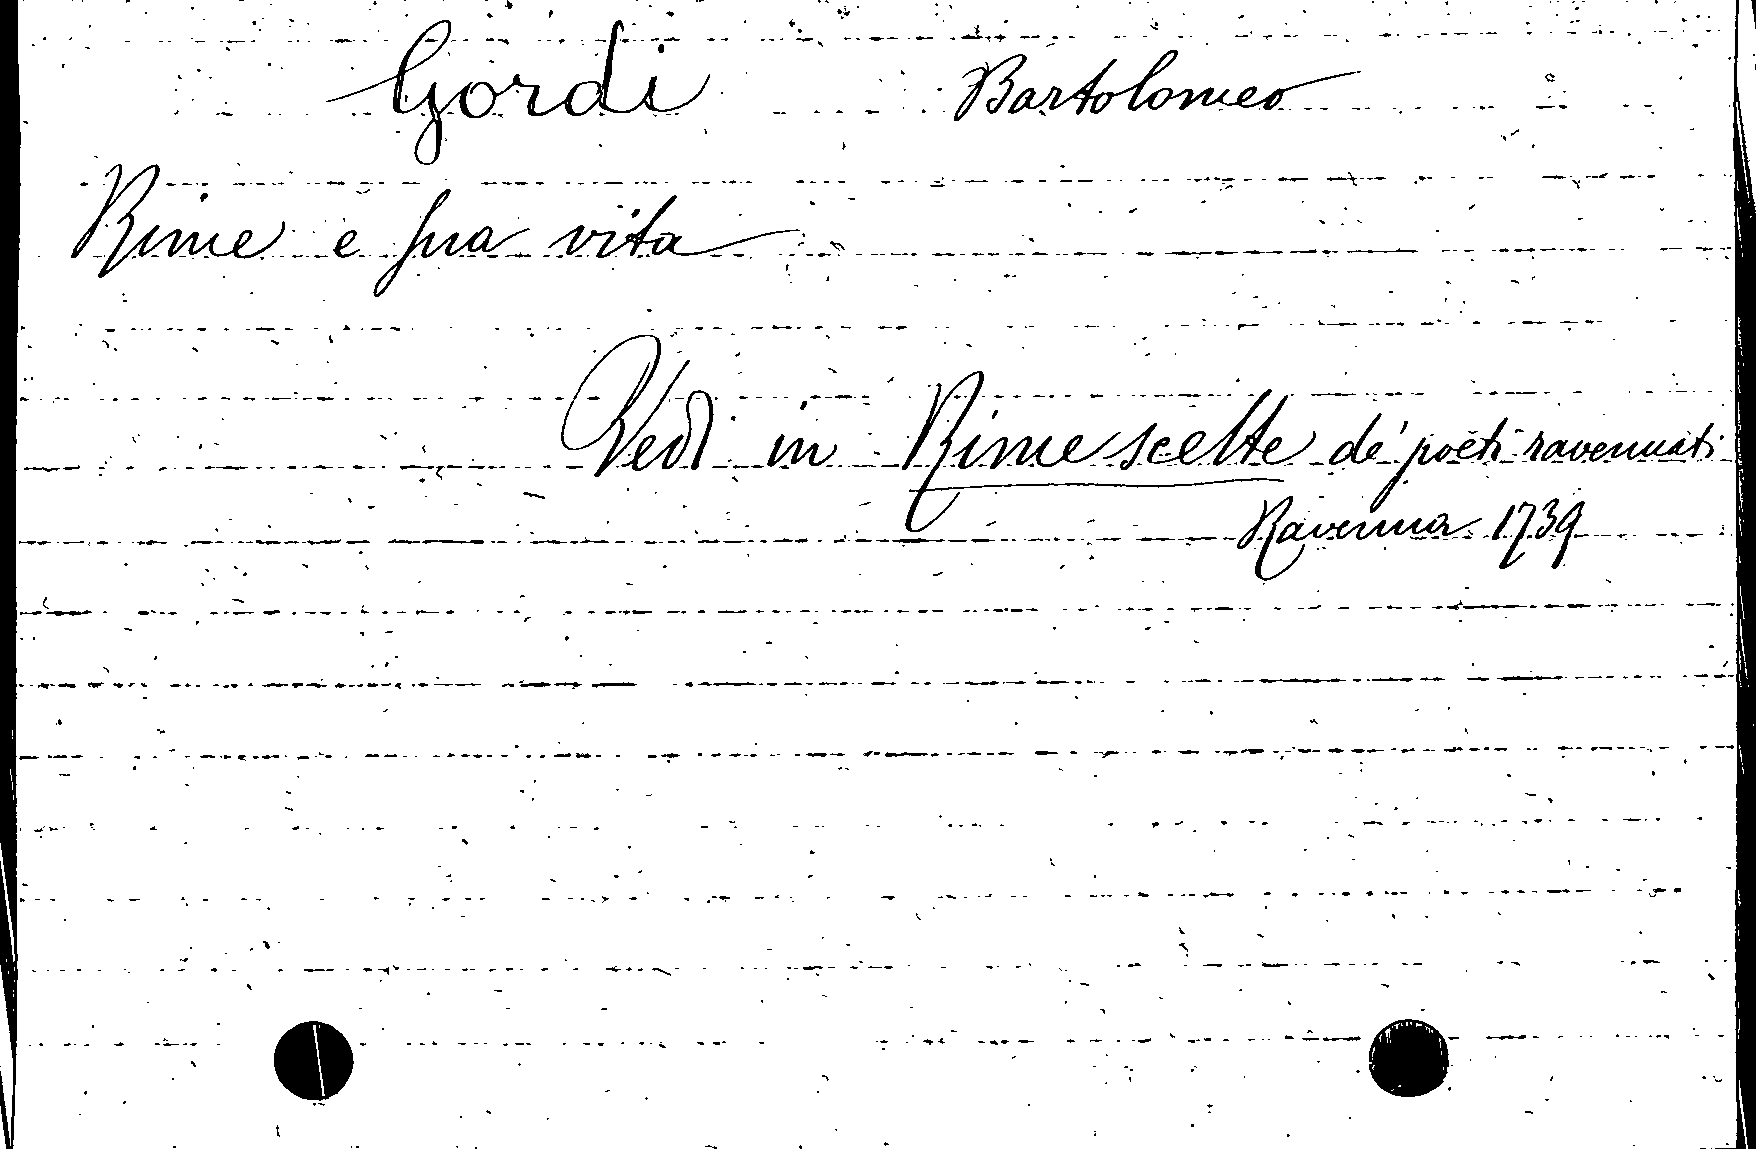 Gordi Bartolomeo
Rime e sua vita
Vedi in Rime scelte de' poeti ravennati
Ravenna 1739